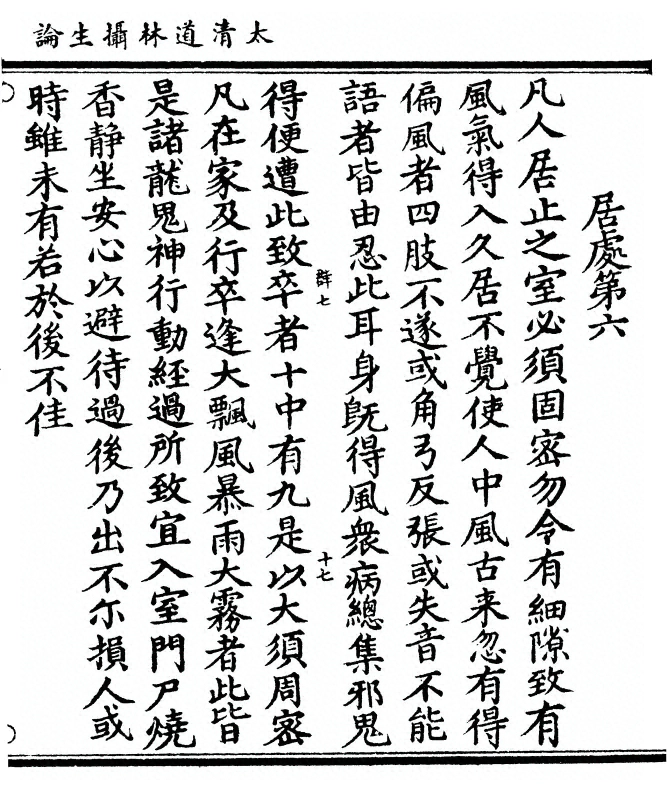 太清道林攝生論
居處第六
凡人居止之室必須固密勿令有細隙致有
風氣得入久居不覺使人中風古来忽有得
偏風者四肢不遂或角弓反張或失音不能
語者皆由忍此耳身旣得風衆病總集邪鬼
群七
十七
得便遭此致卒者十中有九是以大須周密
凡在家及行卒逢大飄風暴雨大霧者此皆
是諸龍鬼神行動經過所致宜入室門戸燒
香静坐安心以避待過後乃出不尓損人或
時雖未有若於後不佳